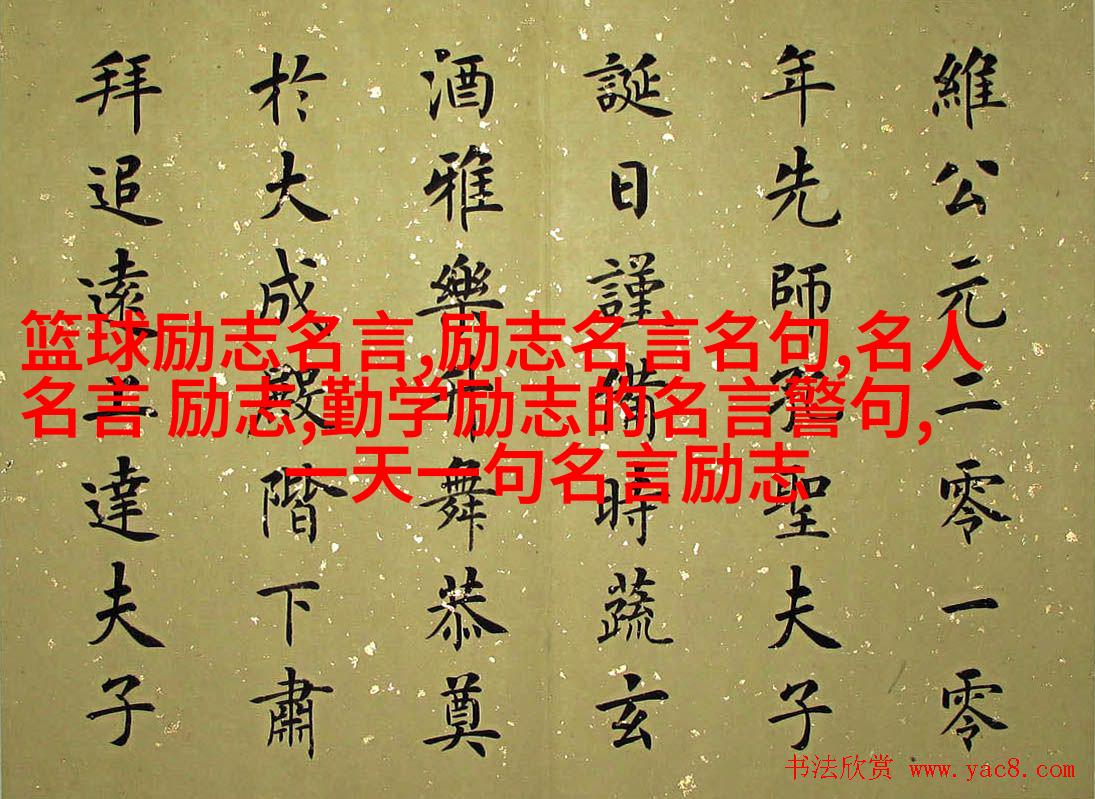 維公元二零一零
年先師孔聖夫子
誕日謹備時蔬玄
酒雅樂舞恭奠
於大成殿階下肅
拜追遠達夫子
篮球励志名言,励志名言名句,名人
名言 励志,勤学励志的名言警句,
一天一句名言励志
书法欣赏 www.yac8.com